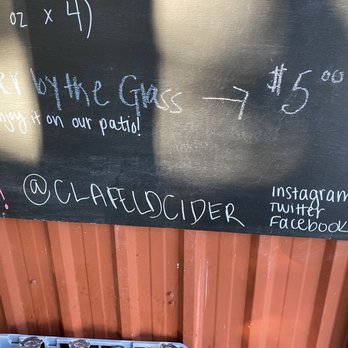 oz x 4)
er by the Glass → $5.00
njoy it on our patio!
! @CLAFELDCIDER
instagram
Twitter
Facebook